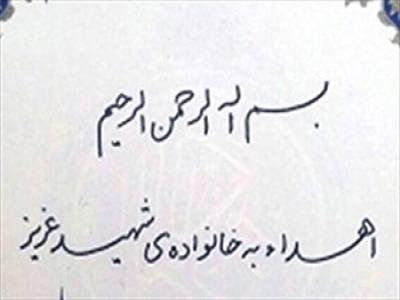 بسم الله الرحمن الرحیم
اهداء به خانواده‌ی شهید عزیز